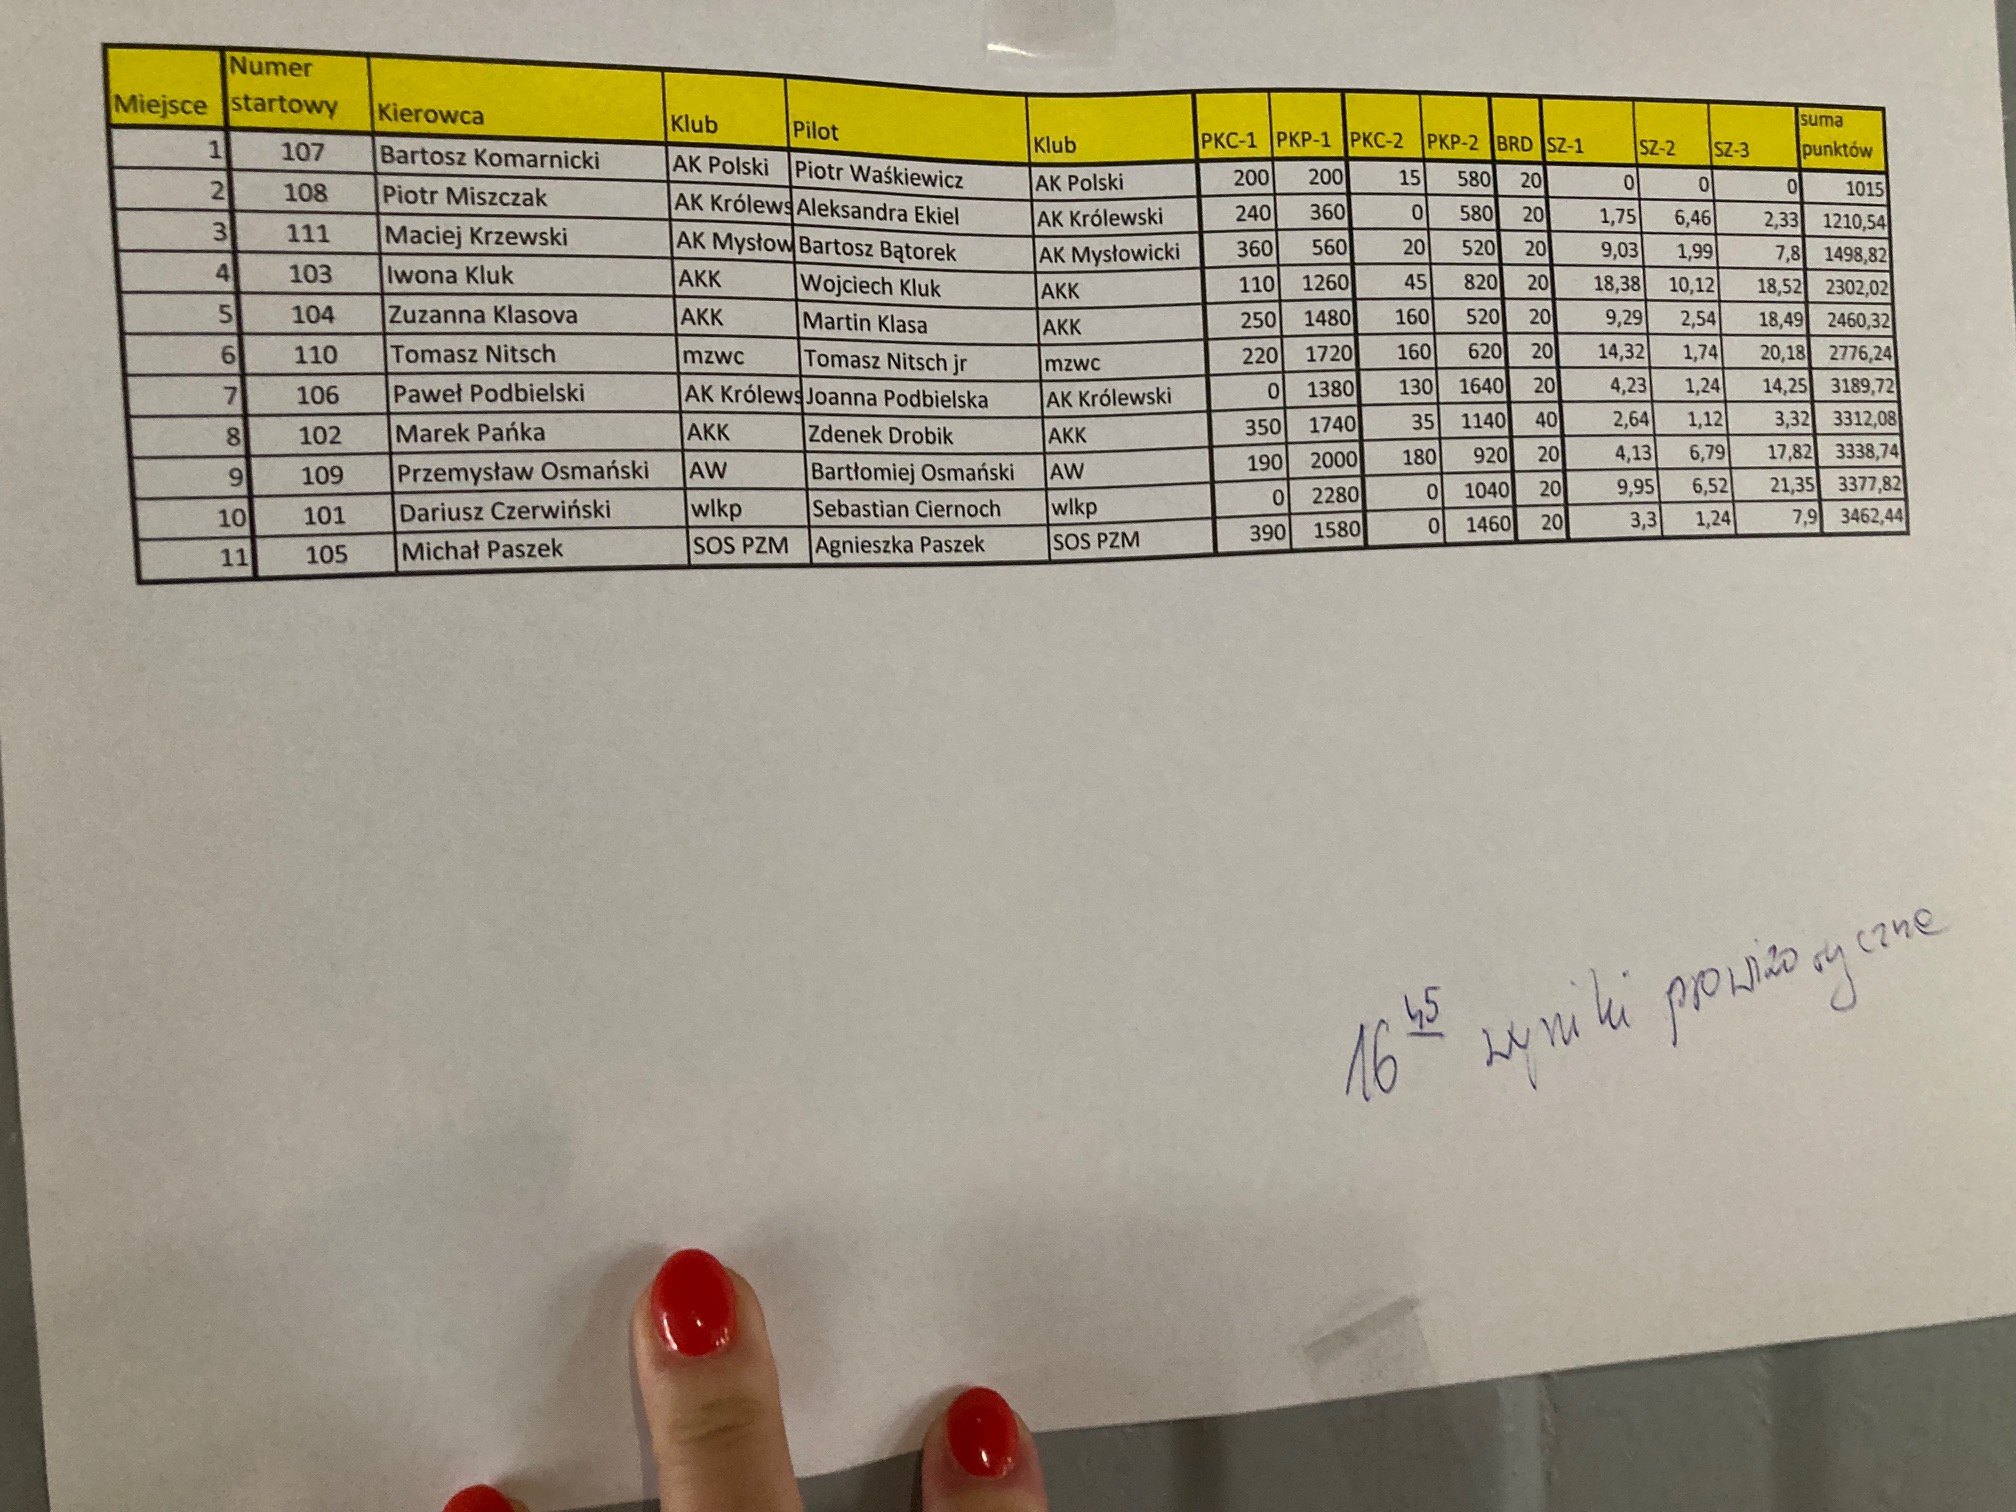 Miejsce Numer startowy Kierowca Klub Pilot Klub PKC-1 PKP-1 PKC-2 PKP-2 BRD SZ-1 SZ-2 SZ-3 suma punktów
1 107 Bartosz Komarnicki AK Polski Piotr Waśkiewicz AK Polski 200 200 15 580 20 0 0 0 1015
2 108 Piotr Miszczak AK Królews Aleksandra Ekiel AK Królewski 240 360 0 580 20 1,75 6,46 2,33 1210,54
3 111 Maciej Krzewski AK Mysłow Bartosz Bątorek AK Mysłowicki 360 560 20 520 20 9,03 1,99 7,8 1498,82
4 103 Iwona Kluk AKK Wojciech Kluk AKK 110 1260 45 820 20 18,38 10,12 18,52 2302,02
5 104 Zuzanna Klasova AKK Martin Klasa AKK 250 1480 160 520 20 9,29 2,54 18,49 2460,32
6 110 Tomasz Nitsch mzwc Tomasz Nitsch jr mzwc 220 1720 160 620 20 14,32 1,74 20,18 2776,24
7 106 Paweł Podbielski AK Królews Joanna Podbielska AK Królewski 0 1380 130 1640 20 4,23 1,24 14,25 3189,72
8 102 Marek Pańka AKK Zdenek Drobik AKK 350 1740 35 1140 40 2,64 1,12 3,32 3312,08
9 109 Przemysław Osmański AW Bartłomiej Osmański AW 190 2000 180 920 20 4,13 6,79 17,82 3338,74
10 101 Dariusz Czerwiński wlkp Sebastian Ciernoch wlkp 0 2280 0 1040 20 9,95 6,52 21,35 3377,82
11 105 Michał Paszek SOS PZM Agnieszka Paszek SOS PZM 390 1580 0 1460 20 3,3 1,24 7,9 3462,44
16 45 wyniki prowizoryczne